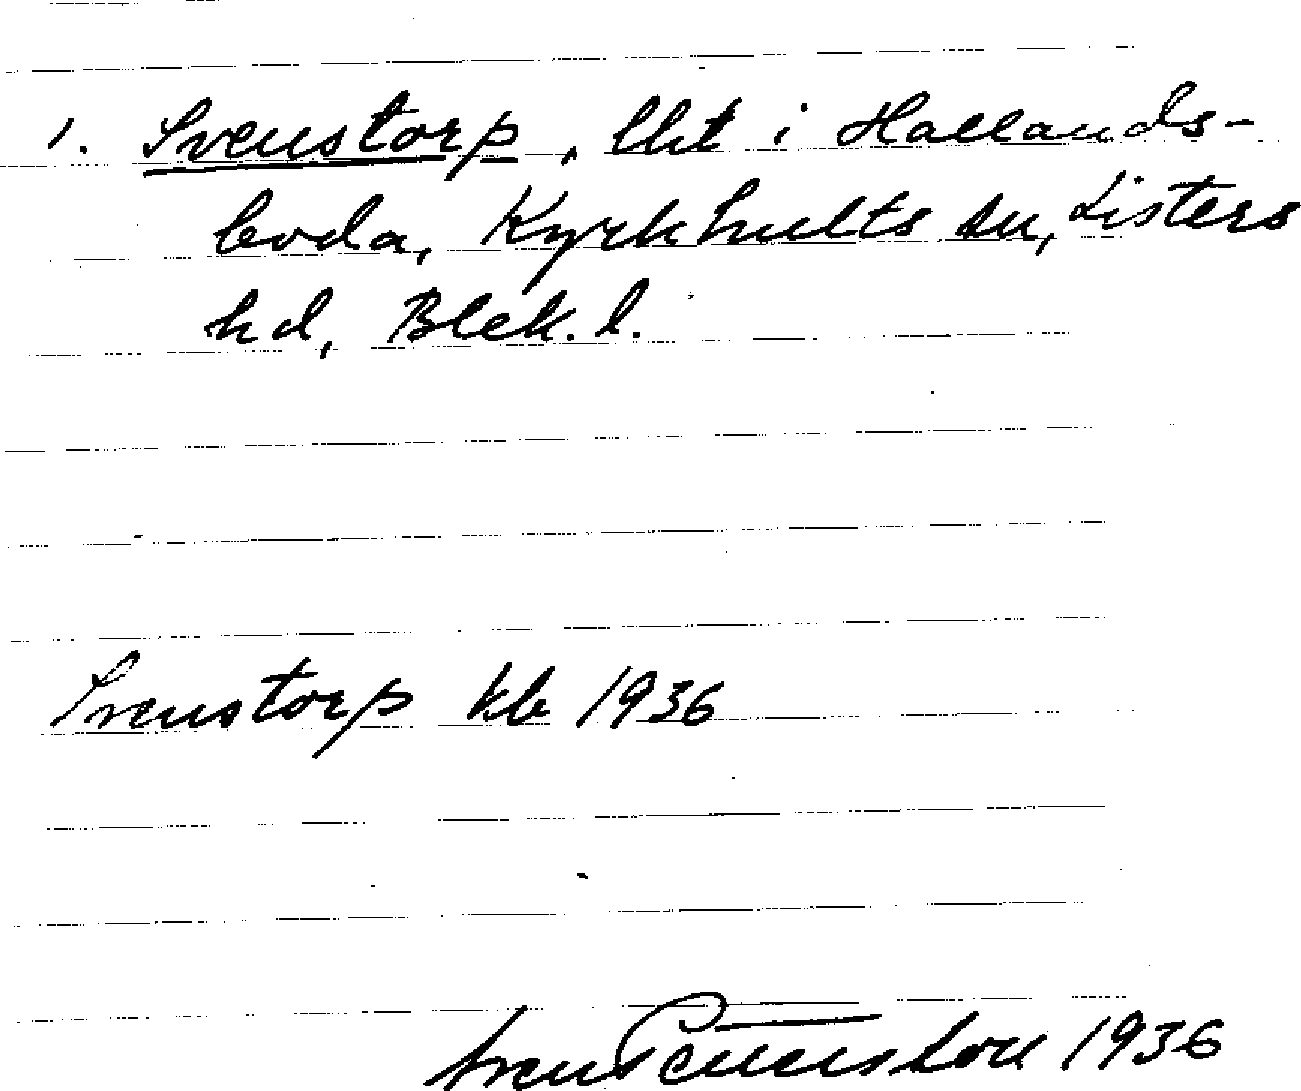 1. Svenstorp, lht i Hallands-
boda, Kyrkhults sn, Listers
hd, Blek. l.
Svenstorp klb 1936
Sven Pettersson 1936